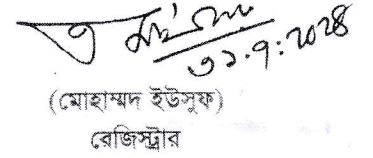 ৩১.৭.২০২৪
(মোহাম্মদ ইউসুফ)
রেজিস্ট্রার